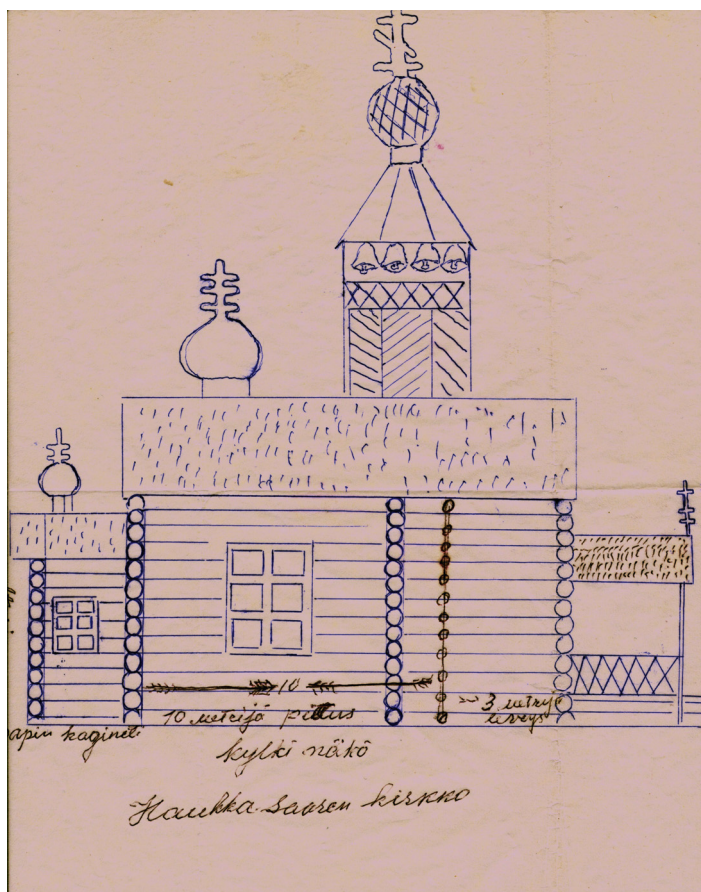 10
10 metrijä pittus
3 metrijä
apin kaginet
kylki näkö
Haukka-saaren kirkko